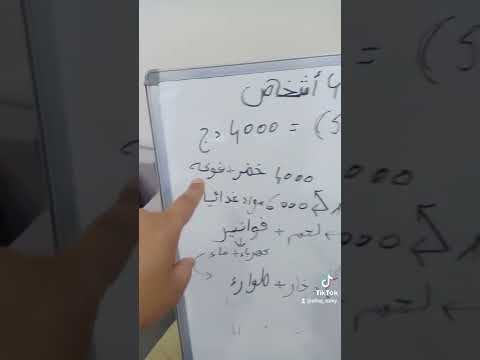 4 أشخاص
= 4000 دج
4000 خضر + فوكه
6000 مواد غذائية
لحم + فواتير
كهرباء + ماء
خار + طوارئ
TikTok